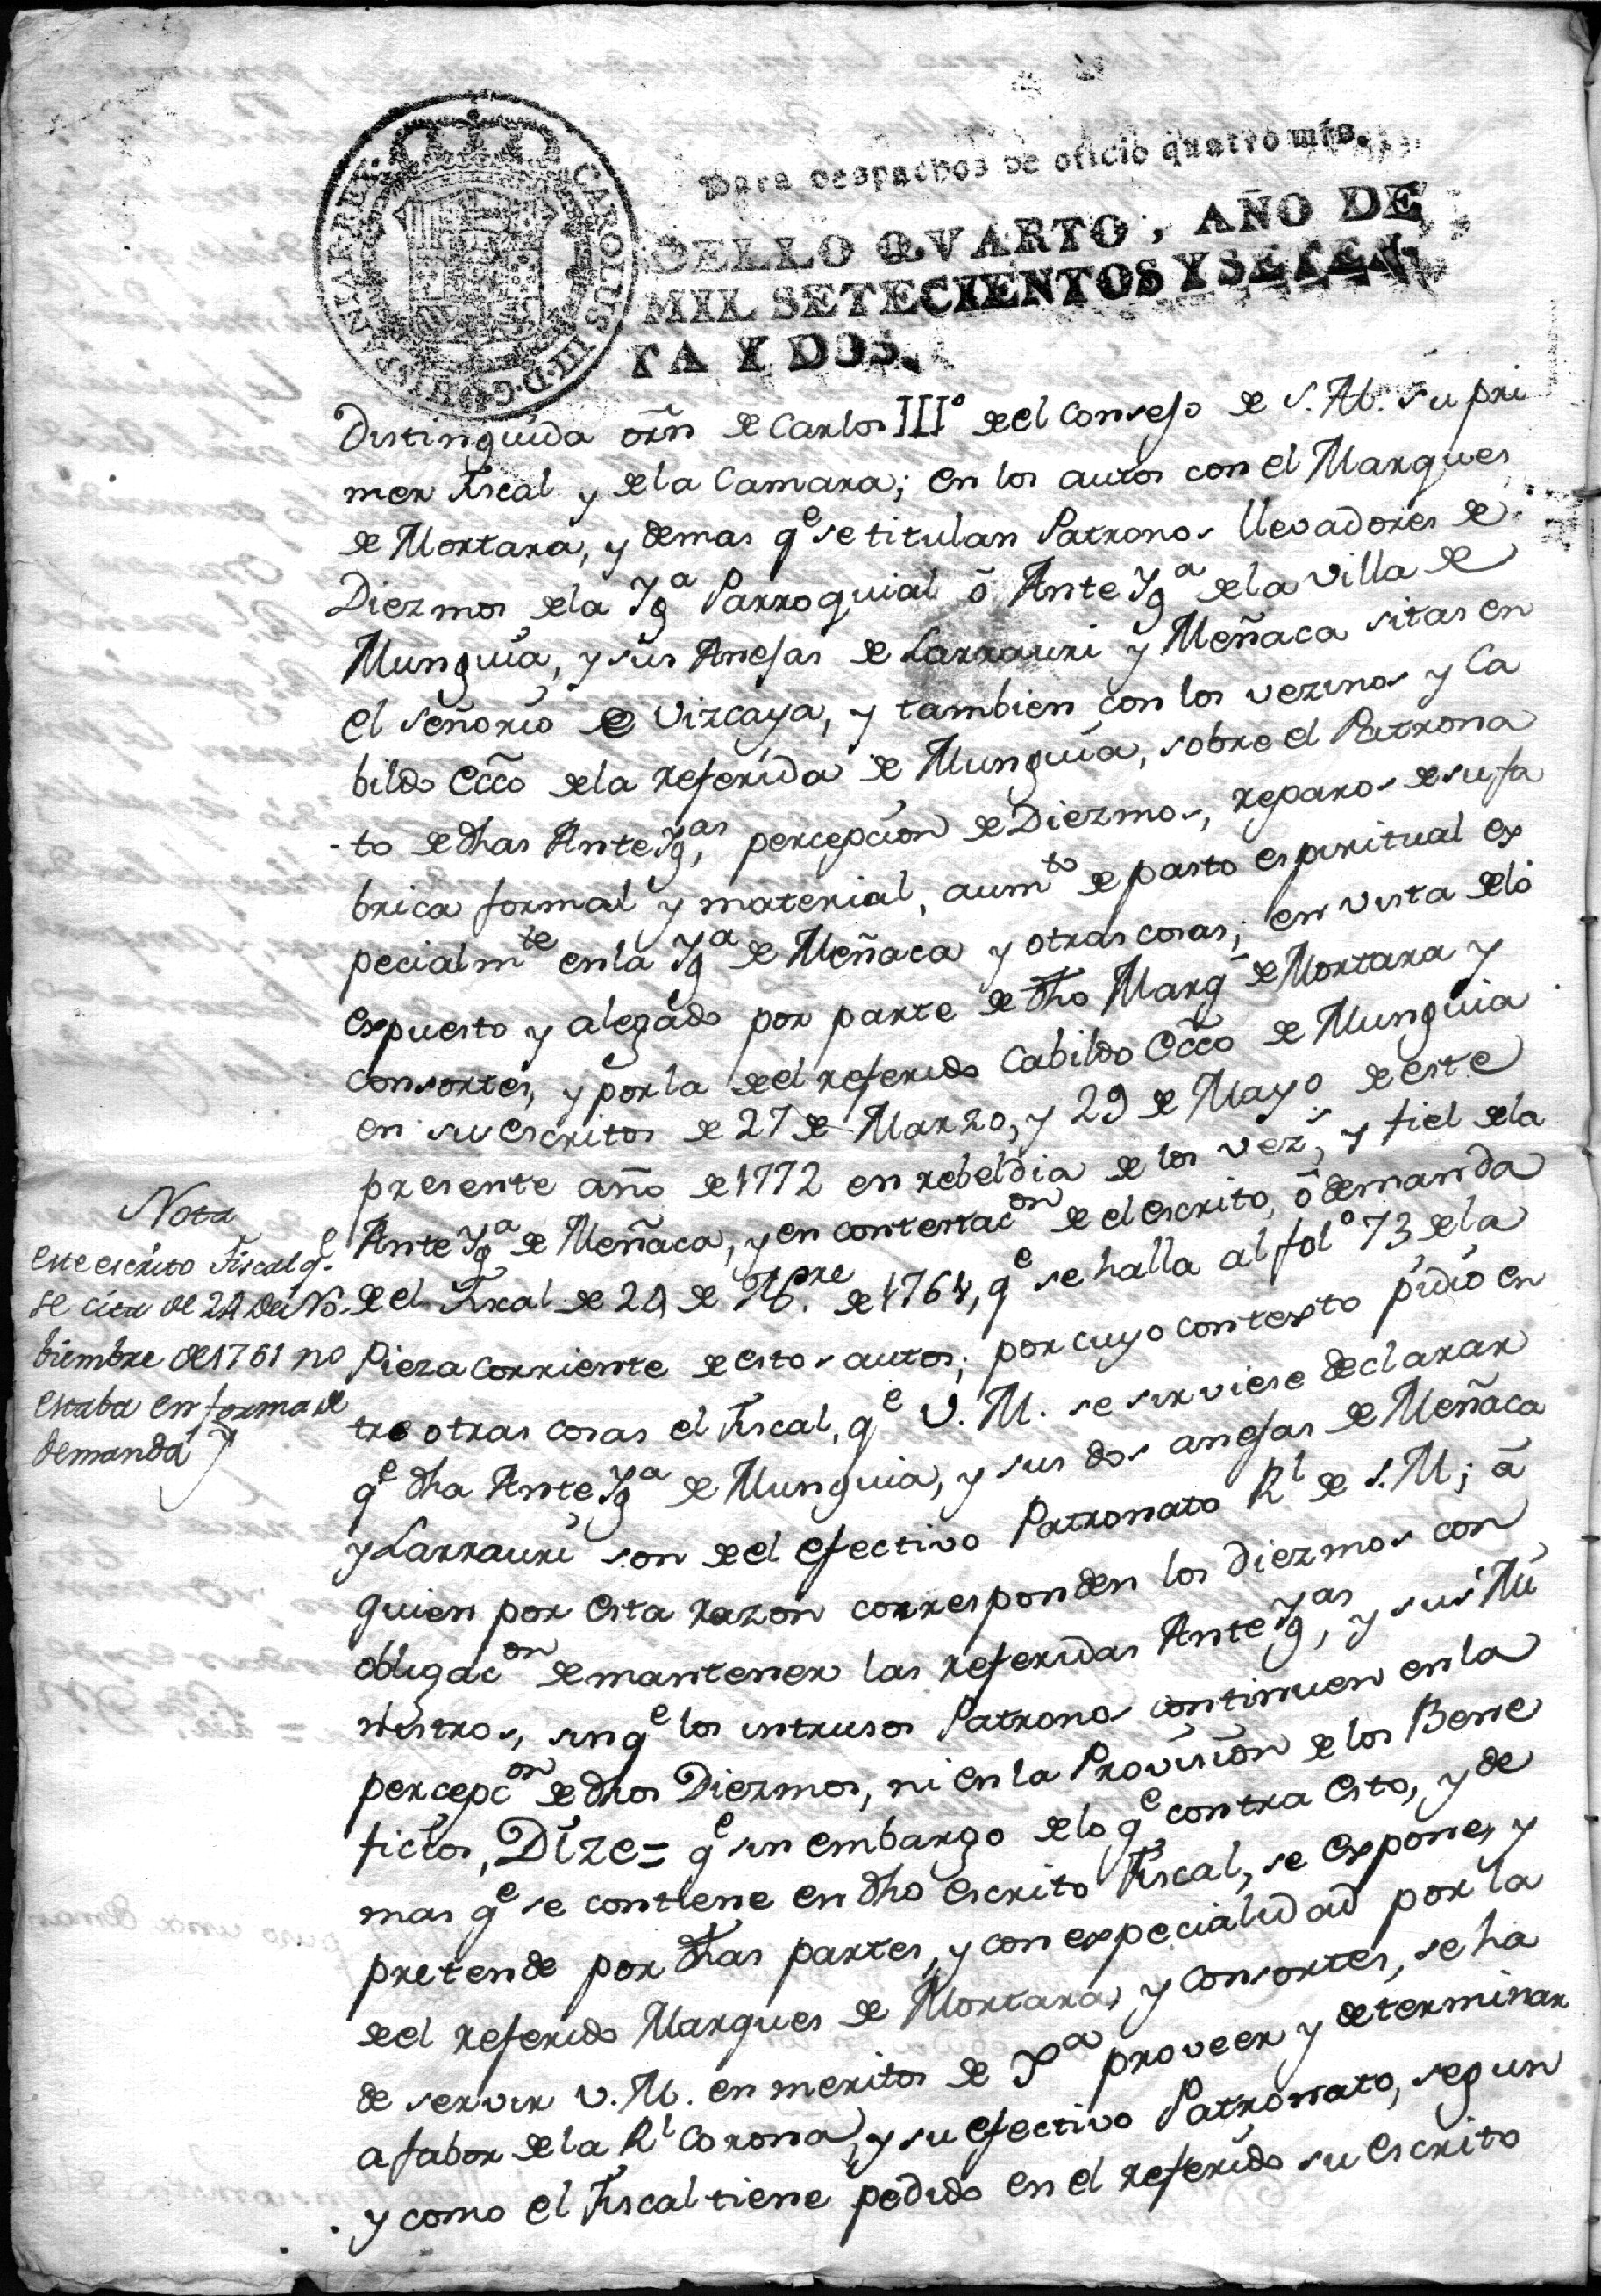 Para despachos de oficio quatro mrs.
SELLO QVARTO, AÑO DE
MIL SETECIENTOS Y SETEN
TA Y DOS.
CAROLUS III D.G. HISPANIAR REX
Distinguida orñ de Carlos IIIº de el Consejo de S. M. su pri
mer Fiscal y de la Camara; en los autos con el Marques
de Mortara, y demas qe se titulan Patronos llevadores de
Diezmos de la Yga Parroquial ô Ante Yga de la villa de
Munguia, y sus Anejas de Larrauri y Meñaca sitas en
el señorio de Vizcaya, y tambien con los vezinos y Ca
bildo Ecco de la referida de Munguia, sobre el Patrona
to de dhas Ante Ygas, percepcion de Diezmos, reparos de su fa
brica formal y material, aumto de pasto espiritual ex
pecialmte en la Yga de Meñaca y otras cosas; en vista de lo
expuesto y alegado por parte de dho Marqs de Mortara y
consortes, y por la de el referido Cabildo Ecco de Munguia
en sus escritos de 27 de Marzo, y 29 de Mayo de este
presente año de 1772 en rebeldia de los vezs, y fiel de la
Ante Yga de Meñaca, y en contestacon de el escrito, ô demanda
de el Fiscal de 24 de Nbre de 1761, qe se halla al folº 73 de la
Pieza corriente de estos autos; por cuyo contexto pidió en
tre otras cosas el Fiscal, qe V. M. se sirviese declarar
qe dha Ante Yga de Munguia, y sus dos anejas de Meñaca
y Larrauri son de el efectivo Patronato Rl de S. M; â
quien por esta razon corresponden los Diezmos con
obligacon de mantener las referidas Ante Ygas, y sus Mi
nistros, sin qe los intrusos Patronos continuen en la
percepcon de dhos Diezmos, ni en la Provision de los Bene
ficios, Dize = qe sin embargo de lo qe contra esto, y de
mas qe se contiene en dho escrito Fiscal, se expone, y
pretende por dhas partes, y con expecialidad por la
de el referido Marques de Mortara, y consortes, se ha
de servir V. M. en meritos de Jª proveer y determinar
a fabor de la Rl Corona, y su efectivo Patronato, segun
y como el Fiscal tiene pedido en el referido su escrito
Nota
este escrito Fiscal qe
se cita de 24 de No
biembre de 1761 no
estaba en forma de
demanda